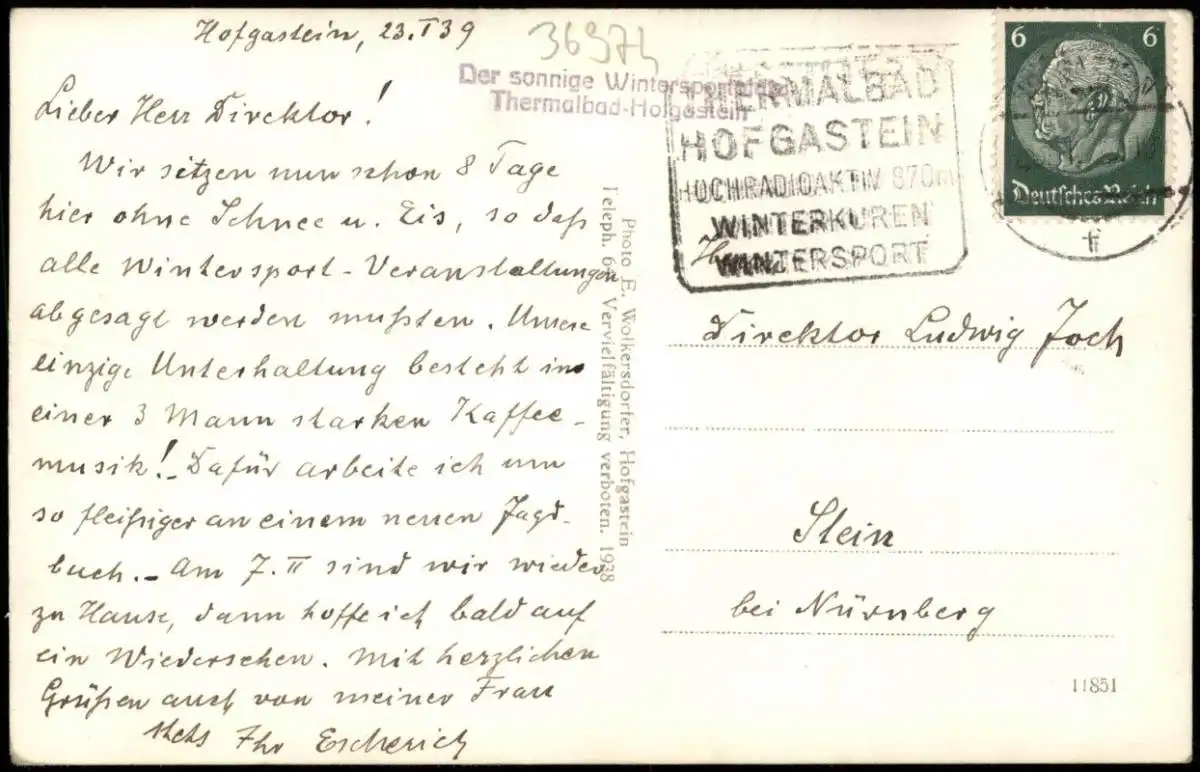 Hofgastein, 23.I39
Lieber Herr Direktor!
Wir sitzen nun schon 8 Tage
hier ohne Schnee u. Eis, so daß
alle Wintersport-Veranstaltungen
abgesagt werden mußten. Unsere
einzige Unterhaltung besteht in
einer 3 Mann starken Kaffee-
musik!- Dafür arbeite ich um
so fleißiger an einem neuen Jagd-
buch.- Am 7.II sind wir wieder
zu Hause, dann hoffe ich bald auf
ein Wiedersehen. Mit herzlichen
Grüßen auch von meiner Frau
stets Ihr Escherich
36974
Der sonnige Wintersportplatz
Thermalbad-Hofgastein
THERMALBAD
HOFGASTEIN
HOCHRADIOAKTIV 870m
WINTERKUREN
WINTERSPORT
6 6
Deutsches Reich
Photo E. Wolkersdorfer, Hofgastein
Teleph. 6 Vervielfältigung verboten. 1938
Direktor Ludwig Joch
Stein
bei Nürnberg
11851